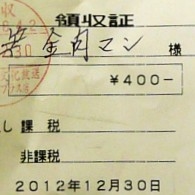 領収証
金肉マン 様
¥400-
し 課税
非課税
2012年12月30日